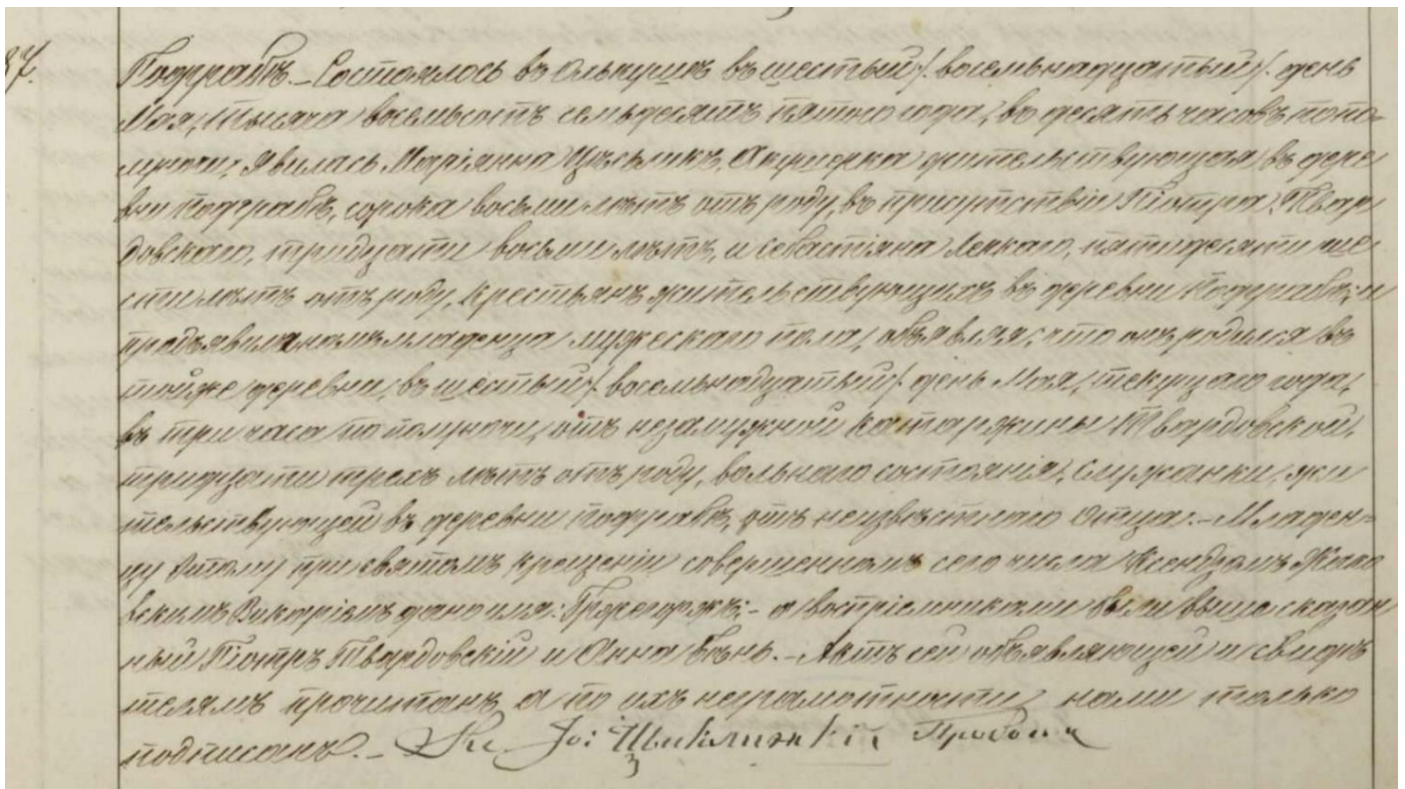 87.
Подграбѣ. – Состоялось въ Олькушѣ въ шестый /. восемьнадцатый /. день
Мая, тысяча восемьсотъ семьдесятъ пятого года, въ десять часовъ попо-
луночи, Явилась Маріянна Акушерка жительствующая въ дере
вни Подграбѣ, сорока восьми лѣтъ отъ роду, въ присутствіи Піотра Твар
довскаго, тридцати восьми лѣтъ, и Себастіяна пятидесяти ше
сти лѣтъ отъ роду, крестьянъ жительствующихъ въ деревни Подграбѣ; и
предъявила намъ младенца мужескаго пола, объявляя, что онъ родился въ
тойже деревни, въ шестый /. восемьнадцатый /. день Мая, текущаго года,
въ три часа по полуночи, отъ незамужной Катаржины Твардовской,
тридцати трехъ лѣтъ отъ роду, вольнаго состоянія, служанки, жи
тельствующей въ деревни Подграбѣ, отъ неизвѣстнаго Отца. – Младен-
цу этому при святомъ крещеніи совершенномъ сего числа Ксендзомъ
Викаріемъ дано имя: Гржегоржъ; – а воспріемниками были выше сказан
ный Піотръ Твардовскій и Анна – Актъ сей объявляющей и свидѣ
телямъ прочитанъ, а по ихъ неграмотности нами только
подписанъ. –